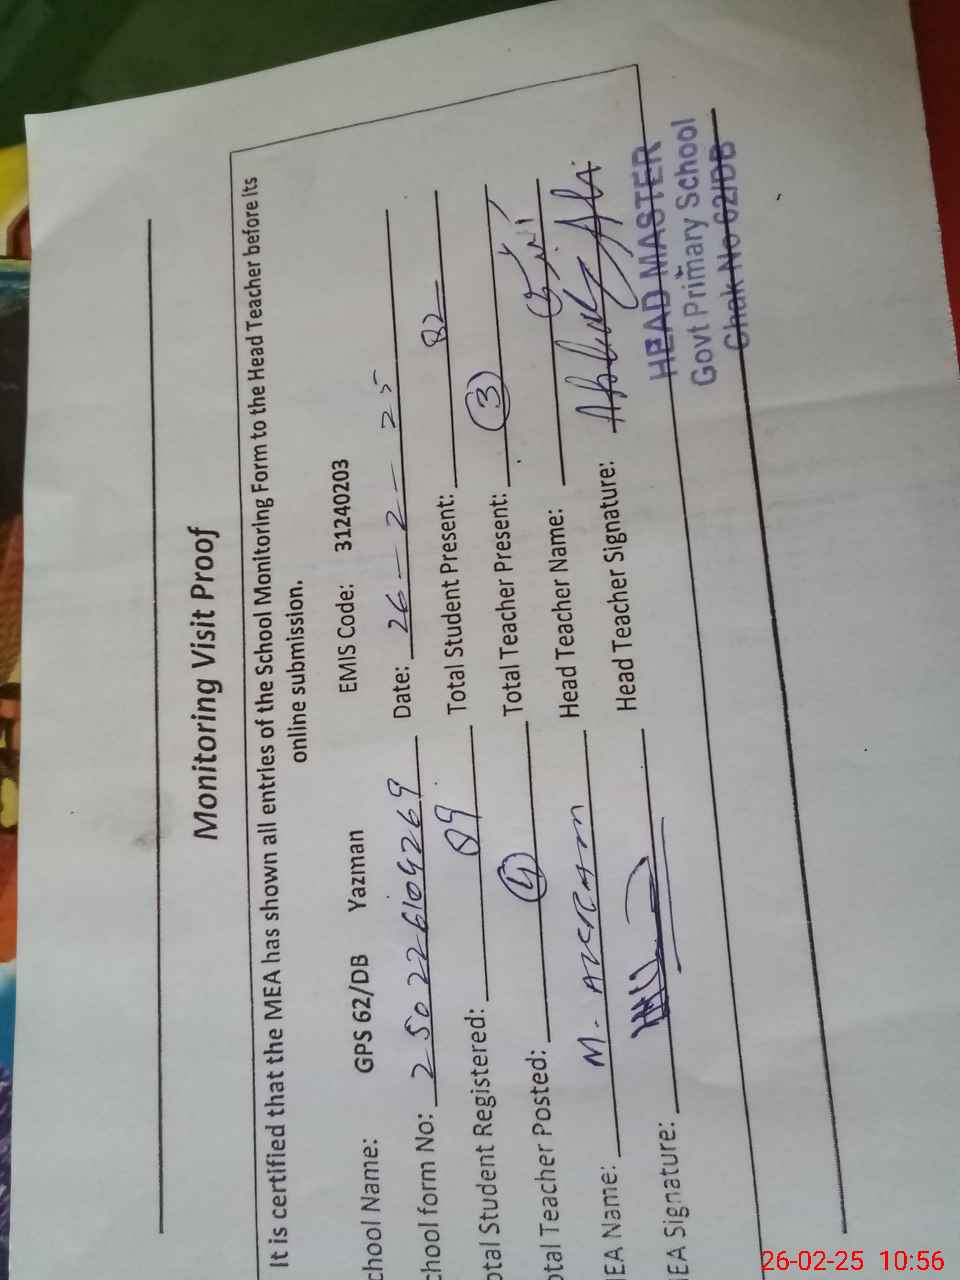 Monitoring Visit Proof
It is certified that the MEA has shown all entries of the School Monitoring Form to the Head Teacher before its
online submission.
chool Name: GPS 62/DB Yazman EMIS Code: 31240203
chool form No: 250226104269 Date: 26-2-25
otal Student Registered: 89 Total Student Present: 82
otal Teacher Posted: 4 Total Teacher Present: 3
IEA Name: M. Head Teacher Name:
IEA Signature: Head Teacher Signature:
HEAD MASTER
Govt Primary School
Chak No 62/DB
26-02-25 10:56